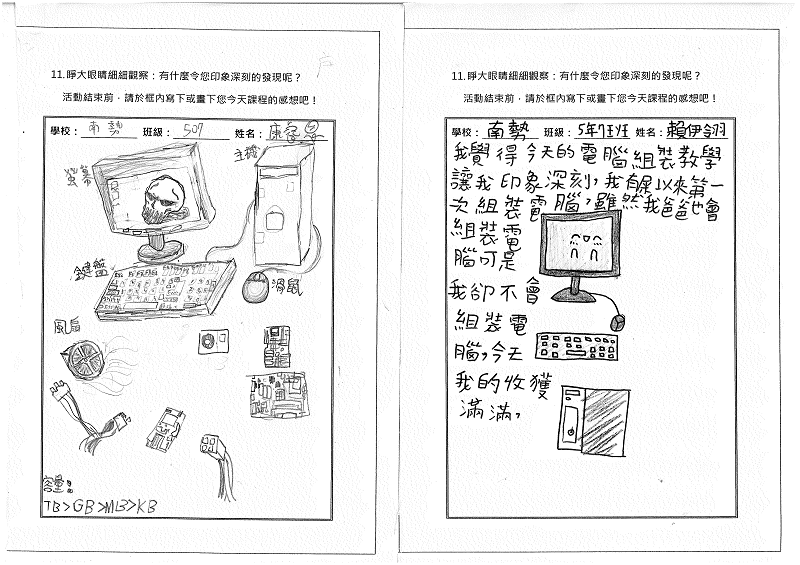 11.睜大眼睛細細觀察：有什麼令您印象深刻的發現呢？
活動結束前，請於框內寫下或畫下您今天課程的感想吧！
學校：南勢 班級：507 姓名：康
主機
螢幕
鍵盤
滑鼠
風扇
容量：
TB>GB>MB>KB
11.睜大眼睛細細觀察：有什麼令您印象深刻的發現呢？
活動結束前，請於框內寫下或畫下您今天課程的感想吧！
學校：南勢 班級：5年7班 姓名：賴伊翎
我覺得今天的電腦組裝教學
讓我印象深刻，我有史以來第一
次組裝電腦，雖然我爸爸也會
組裝電
腦可是
我卻不會
組裝電
腦，今天
我的收獲
滿滿，